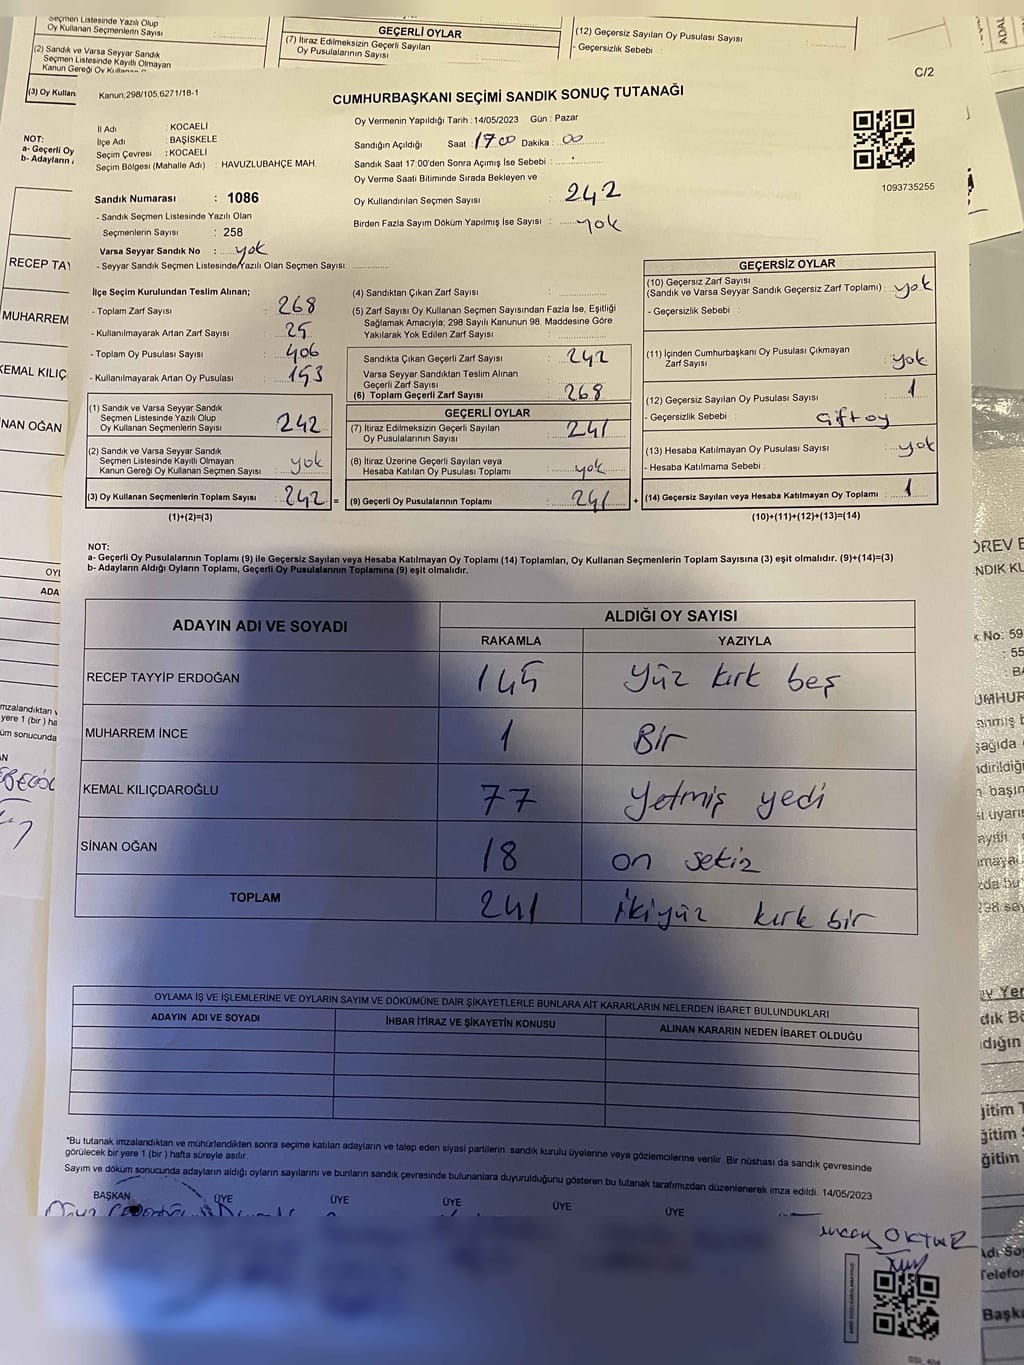 C/2
Kanun;298/105,6271/18-1
CUMHURBAŞKANI SEÇİMİ SANDIK SONUÇ TUTANAĞI
İl Adı : KOCAELİ
İlçe Adı : BAŞİSKELE
Seçim Çevresi : KOCAELİ
Seçim Bölgesi (Mahalle Adı) : HAVUZLUBAHÇE MAH.
Sandık Numarası : 1086
- Sandık Seçmen Listesinde Yazılı Olan
Seçmenlerin Sayısı : 258
Varsa Seyyar Sandık No : yok
- Seyyar Sandık Seçmen Listesinde Yazılı Olan Seçmen Sayısı:
Oy Vermenin Yapıldığı Tarih : 14/05/2023 Gün : Pazar
Sandığın Açıldığı Saat : 17 00 Dakika : 00
Sandık Saat 17:00'den Sonra Açımış İse Sebebi :
Oy Verme Saati Bitiminde Sırada Bekleyen ve
Oy Kullandırılan Seçmen Sayısı : 242
Birden Fazla Sayım Döküm Yapılmış İse Sayısı : yok
1093735255
İlçe Seçim Kurulundan Teslim Alınan;
- Toplam Zarf Sayısı : 268
- Kullanılmayarak Artan Zarf Sayısı : 25
- Toplam Oy Pusulası Sayısı : 406
- Kullanılmayarak Artan Oy Pusulası : 193
(1) Sandık ve Varsa Seyyar Sandık
Seçmen Listesinde Yazılı Olup
Oy Kullanan Seçmenlerin Sayısı : 242
(2) Sandık ve Varsa Seyyar Sandık
Seçmen Listesinde Kayıtlı Olmayan
Kanun Gereği Oy Kullanan Seçmen Sayısı : yok
(3) Oy Kullanan Seçmenlerin Toplam Sayısı : 242 =
(1)+(2)=(3)
(4) Sandıktan Çıkan Zarf Sayısı :
(5) Zarf Sayısı Oy Kullanan Seçmen Sayısından Fazla İse, Eşitliği
Sağlamak Amacıyla; 298 Sayılı Kanunun 98. Maddesine Göre
Yakılarak Yok Edilen Zarf Sayısı :
Sandıkta Çıkan Geçerli Zarf Sayısı : 242
Varsa Seyyar Sandıktan Teslim Alınan
Geçerli Zarf Sayısı :
(6) Toplam Geçerli Zarf Sayısı : 268
GEÇERLİ OYLAR
(7) İtiraz Edilmeksizin Geçerli Sayılan
Oy Pusulalarının Sayısı : 241
(8) İtiraz Üzerine Geçerli Sayılan veya
Hesaba Katılan Oy Pusulası Toplamı : yok
(9) Geçerli Oy Pusulalarının Toplamı : 241 +
GEÇERSİZ OYLAR
(10) Geçersiz Zarf Sayısı
(Sandık ve Varsa Seyyar Sandık Geçersiz Zarf Toplamı) : yok
- Geçersizlik Sebebi :
(11) İçinden Cumhurbaşkanı Oy Pusulası Çıkmayan
Zarf Sayısı : yok
(12) Geçersiz Sayılan Oy Pusulası Sayısı : 1
- Geçersizlik Sebebi : Çift oy
(13) Hesaba Katılmayan Oy Pusulası Sayısı : yok
- Hesaba Katılmama Sebebi :
(14) Geçersiz Sayılan veya Hesaba Katılmayan Oy Toplamı : 1
(10)+(11)+(12)+(13)=(14)
NOT:
a- Geçerli Oy Pusulalarının Toplamı (9) ile Geçersiz Sayılan veya Hesaba Katılmayan Oy Toplamı (14) Toplamları, Oy Kullanan Seçmenlerin Toplam Sayısına (3) eşit olmalıdır. (9)+(14)=(3)
b- Adayların Aldığı Oyların Toplamı, Geçerli Oy Pusulalarının Toplamına (9) eşit olmalıdır.
ADAYIN ADI VE SOYADI
ALDIĞI OY SAYISI
RAKAMLA YAZIYLA
RECEP TAYYİP ERDOĞAN 145 Yüz kırk beş
MUHARREM İNCE 1 Bir
KEMAL KILIÇDAROĞLU 77 Yetmiş yedi
SİNAN OĞAN 18 on sekiz
TOPLAM 241 İkiyüz kırk bir
OYLAMA İŞ VE İŞLEMLERİNE VE OYLARIN SAYIM VE DÖKÜMÜNE DAİR ŞİKAYETLERLE BUNLARA AİT KARARLARIN NELERDEN İBARET BULUNDUKLARI
ADAYIN ADI VE SOYADI İHBAR İTİRAZ VE ŞİKAYETİN KONUSU ALINAN KARARIN NEDEN İBARET OLDUĞU
"Bu tutanak imzalandıktan ve mühürlendikten sonra seçime katılan adayların ve talep eden siyasi partilerin sandık kurulu üyelerine veya gözlemcilerine verilir. Bir nüshası da sandık çevresinde
görülecek bir yere 1 (bir) hafta süreyle asılır.
Sayım ve döküm sonucunda adayların aldığı oyların sayılarını ve bunların sandık çevresinde bulunanlara duyurulduğunu gösteren bu tutanak tarafımızdan düzenlenerek imza edildi. 14/05/2023
BAŞKAN ÜYE ÜYE ÜYE ÜYE ÜYE
OKTAR